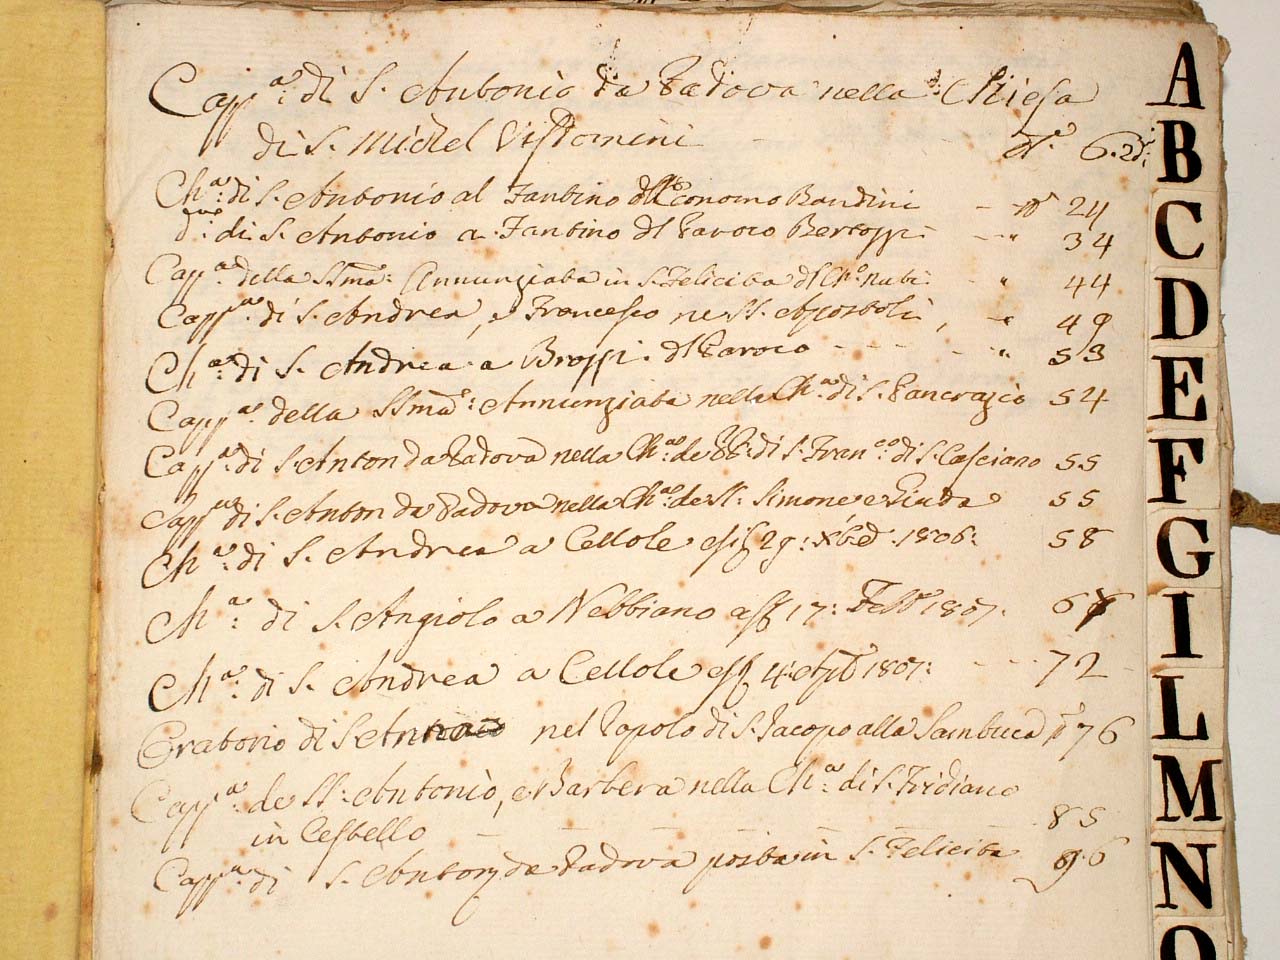 Capp.a di S. Antonio da Padova nella Chiesa
di S. Michel Visdomini 6. 21
Ch.a di S. Antonio al Fantino dll'Economo Bandini 24
di S. Antonio a Fantino dl Paroco 34
Capp.a della SSma: Annunziata in S. Felicita 44
Capp.a di S. Andrea, e Francesco ne SS. Apostoli, 49
Ch.a di S. Andrea a Brozzi dl Paroco 53
Capp.a della SSma: Annunziata nella Ch.a di S. Pancrazio 54
Capp.a di S. Anton da Padova nella Ch.a de PP: di S. Fran.co di S. Casciano 55
Capp.a di S. Anton da Padova nella Ch.a de SS. Simone e Giuda 55
Ch.a di S. Andrea a Cellole 29: Xbre 1806: 58
Ch.a di S. Angiolo a Nebbiano 17: Febb. 1807. 6
Ch.a di S. Andrea a Cellole 4: 1807: 72
Oratorio di S. nel Popolo di S. Jacopo alla Sambuca 76
Capp.a de SS: Antonio, e Barbera nella Ch.a di S. Fridiano
in Cestello 85
Capp.a di S. Antonio da Padova posta in S. Felicita 96
A
B
C
D
E
F
G
I
L
M
N
O